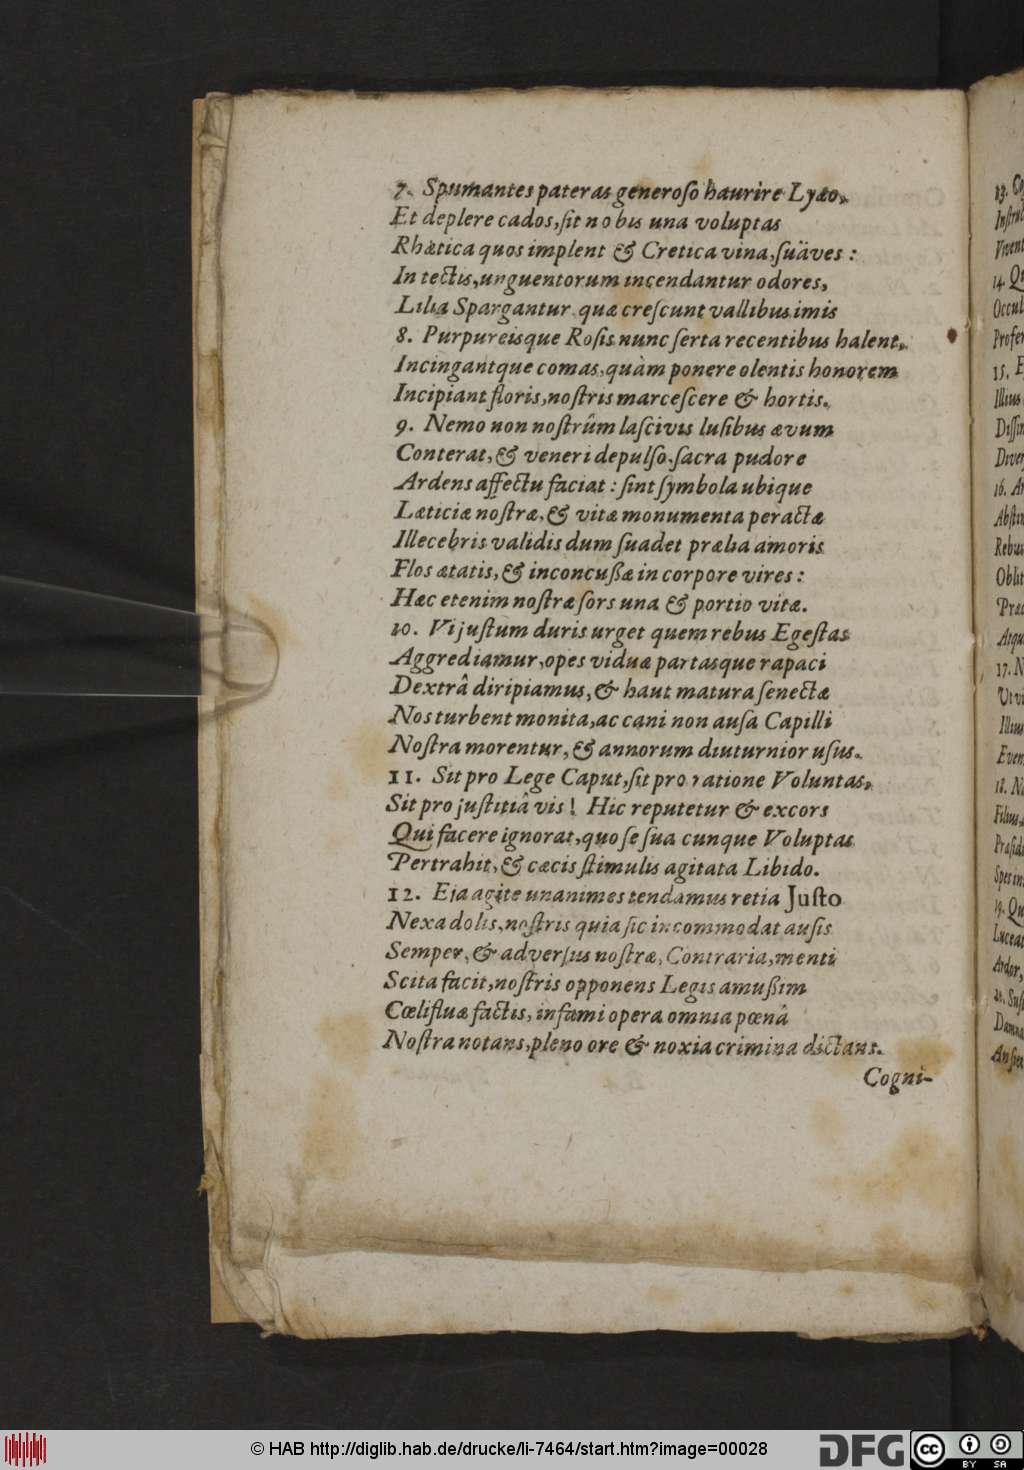 7. Spumantes pateras generoſo haurire Lyæo,
Et deplere cados, ſit nobis una voluptas
Rhætica quos implent & Cretica vina, ſuäves :
In tectis, unguentorum incendantur odores,
Lilia Spargantur quæ creſcunt vallibus imis
8. Purpureisque Roſis nunc ſerta recentibus halent,
Incingantque comas, quàm ponere olentis honorem
Incipiant floris, noſtris marceſcere & hortis.
9. Nemo non noſtrûm laſcivis luſibus ævum
Conterat, & veneri depulſo, ſacra pudore
Ardens affectu faciat : ſint ſymbola ubique
Læticiæ noſtræ, & vitæ monumenta peractæ
Illecebris validis dum ſuadet prælia amoris
Flos ætatis, & inconcuſſæ in corpore vires :
Hæc etenim noſtræ ſors una & portio vitæ.
10. Vi juſtum duris urget quem rebus Egeſtas
Aggrediamur, opes viduæ partasque rapaci
Dextrâ diripiamus, & haut matura ſenectæ
Nos turbent monita, ac cani non auſa Capilli
Noſtra morentur, & annorum diuturnior uſus.
11. Sit pro Lege Caput, ſit pro ratione Voluntas,
Sit pro juſtitiâ vis! Hic reputetur & excors
Qui facere ignorat, quo ſe ſua cunque Voluptas
Pertrahit, & cæcis ſtimulis agitata Libido.
12. Eja agite unanimes tendamus retia Juſto
Nexa dolis, noſtris quia ſic incommodat auſis
Semper, & adverſus noſtræ, Contraria, menti
Scita facit, noſtris opponens Legis amuſſim
Cœlifluæ factis, infami opera omnia pœnâ
Noſtra notans, pleno ore & noxia crimina dictans.
Cogni-
13. Co
Inſtruc
Vivent
14. Qu
Occul
Profer
15. E
Illius
Diſſin
Diver
16. Ar
Abſtin
Rebus
Oblit
Præc
Atqu
17. N
Ut vi
Illius
Even
18. N
Filius
Præſid
Spes in
19. Qu
Luceat
Ardor,
20. Suſ
Damna
Anſiet
© HAB http://diglib.hab.de/drucke/li-7464/start.htm?image=00028
DFG
cc BY SA